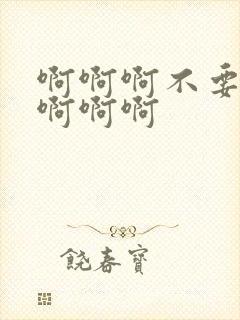 啊啊啊不要
啊啊啊
饶春宝